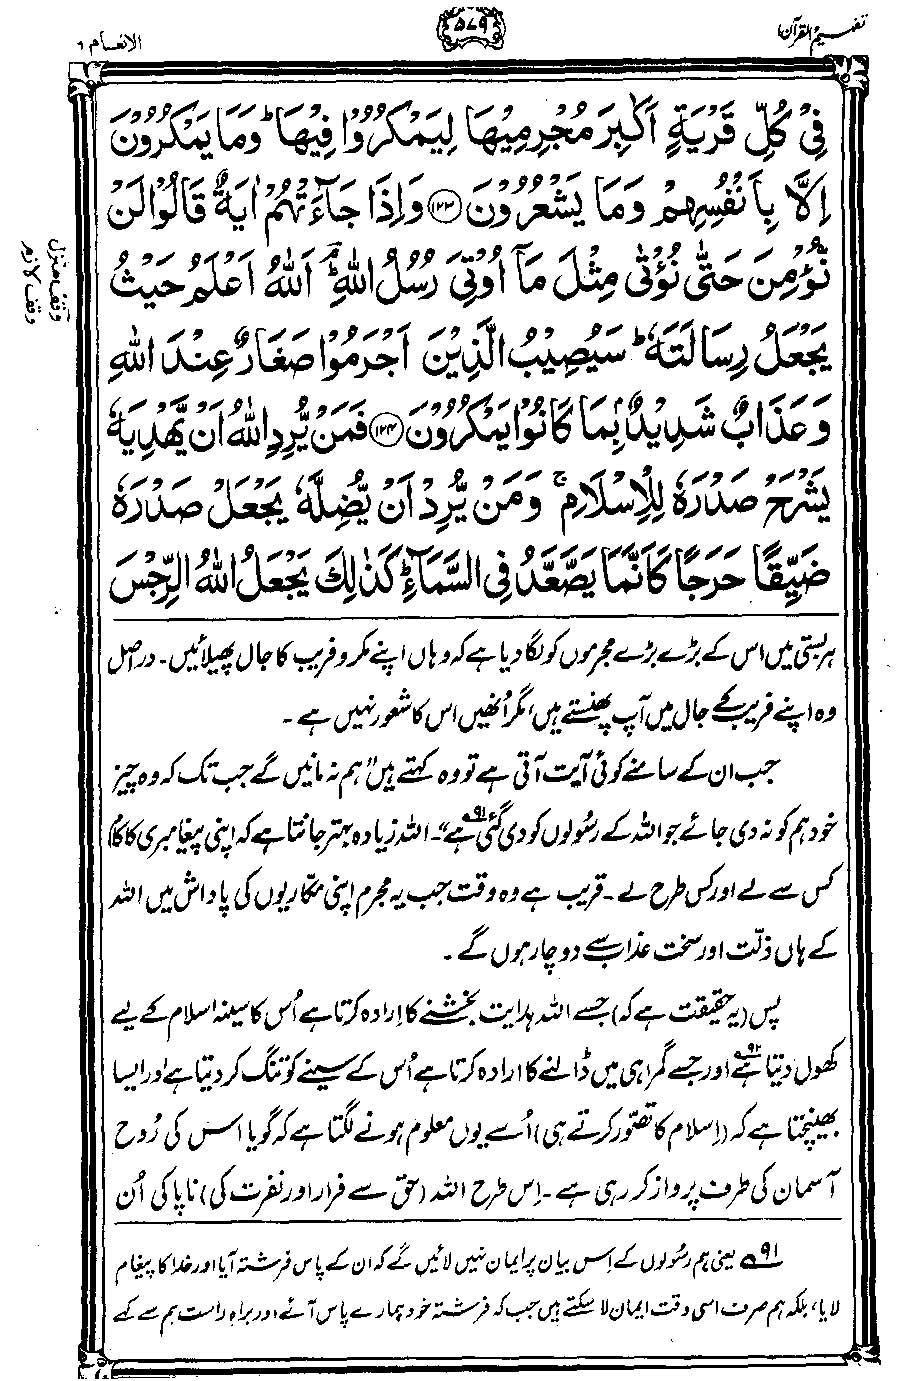 تفہیم القرآن
۵۷۹
الانعام ۶
فِيْ كُلِّ قَرْيَةٍ اَكٰبِرَ مُجْرِمِيْهَا لِيَمْكُرُوْا فِيْهَا ؕ وَمَا يَمْكُرُوْنَ
اِلَّا بِاَنْفُسِهِمْ وَمَا يَشْعُرُوْنَ ﴿۱۲۳﴾ وَاِذَا جَآءَتْهُمْ اٰيَةٌ قَالُوْا لَنْ
نُّؤْمِنَ حَتّٰى نُؤْتٰى مِثْلَ مَآ اُوْتِيَ رُسُلُ اللّٰهِ ؔۘؕ اَللّٰهُ اَعْلَمُ حَيْثُ
يَجْعَلُ رِسَالَتَهٗ ؕ سَيُصِيْبُ الَّذِيْنَ اَجْرَمُوْا صَغَارٌ عِنْدَ اللّٰهِ
وَعَذَابٌ شَدِيْدٌۢ بِمَا كَانُوْا يَمْكُرُوْنَ ﴿۱۲۴﴾ فَمَنْ يُّرِدِ اللّٰهُ اَنْ يَّهْدِيَهٗ
يَشْرَحْ صَدْرَهٗ لِلْاِسْلَامِ ۚ وَمَنْ يُّرِدْ اَنْ يُّضِلَّهٗ يَجْعَلْ صَدْرَهٗ
ضَيِّقًا حَرَجًا كَاَنَّمَا يَصَّعَّدُ فِي السَّمَآءِ ؕ كَذٰلِكَ يَجْعَلُ اللّٰهُ الرِّجْسَ
وقف منزل
وقف لازم
ہر بستی میں اس کے بڑے بڑے مجرموں کو لگا دیا ہے کہ وہاں اپنے مکر و فریب کا جال پھیلائیں۔ دراصل
وہ اپنے فریب کے جال میں آپ پھنستے ہیں، مگر اُنھیں اس کا شعور نہیں ہے۔
جب ان کے سامنے کوئی آیت آتی ہے تو وہ کہتے ہیں "ہم نہ مانیں گے جب تک کہ وہ چیز
خود ہم کو نہ دی جائے جو اللہ کے رسُولوں کو دی گئی ہے۹۱"۔ اللہ زیادہ بہتر جانتا ہے کہ اپنی پیغامبری کا کام
کس سے لے اور کس طرح لے۔ قریب ہے وہ وقت جب یہ مجرم اپنی مکّاریوں کی پاداش میں اللہ
کے ہاں ذلّت اور سخت عذاب سے دوچار ہوں گے۔
پس (یہ حقیقت ہے کہ) جسے اللہ ہدایت بخشنے کا اِرادہ کرتا ہے اُس کا سینہ اسلام کے لیے
کھول دیتا ہے۹۲ اور جسے گمراہی میں ڈالنے کا ارادہ کرتا ہے اُس کے سینے کو تنگ کر دیتا ہے اور ایسا
بھینچتا ہے کہ (اِسلام کا تصوّر کرتے ہی) اُسے یوں معلوم ہونے لگتا ہے کہ گویا اس کی رُوح
آسمان کی طرف پرواز کر رہی ہے۔ اِس طرح اللہ (حق سے فرار اور نفرت کی) ناپاکی اُن
۹۱ یعنی ہم رسُولوں کے اِس بیان پر ایمان نہیں لائیں گے کہ ان کے پاس فرشتہ آیا اور خدا کا پیغام
لایا، بلکہ ہم صرف اسی وقت ایمان لا سکتے ہیں جب کہ فرشتہ خود ہمارے پاس آئے اور براہِ راست ہم سے کہے